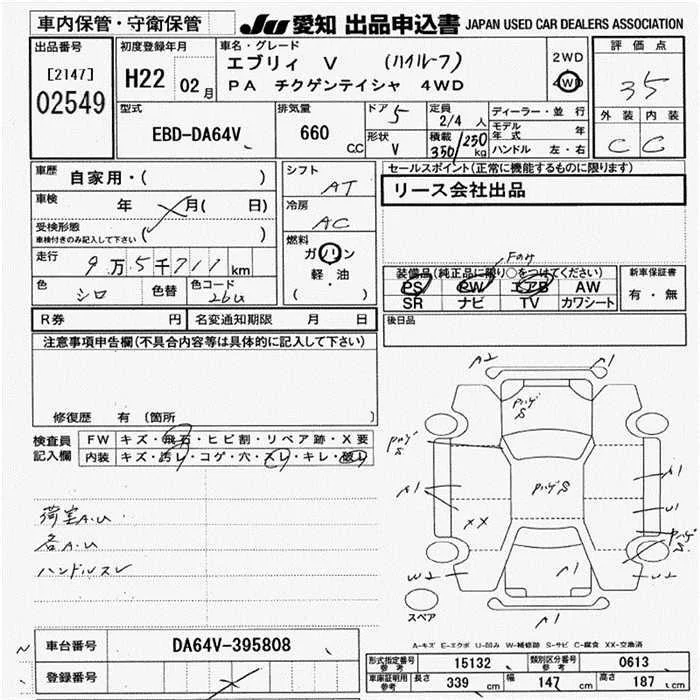 車内保管・守衛保管
JU 愛知 出品申込書 JAPAN USED CAR DEALERS ASSOCIATION
出品番号
[2147]
02549
初度登録年月
H22 02月
車名・グレード
エブリィ V (ハイルーフ)
PA チクゲンテイシャ 4WD
2WD
4WD
評価点
3.5
外装 内装
C C
型式
EBD-DA64V
排気量
660 CC
ドア 5
形状 V
定員
2/4 人
積載 350/250 kg
ディーラー・並行
モデル年式 年
ハンドル 左・右
車歴
自家用・( )
車検 年 月( 日)
受検形態
車検付きのみ記入して下さい ( )
走行
9万5千711km
色 シロ 色替 色コード 26U
シフト
AT
冷房
AC
燃料
ガソリン
軽・油
( )
セールスポイント(正常に機能するものに限ります)
リース会社出品
Fのみ
装備品(純正品に限り○をつけてください)
PS PW エアB AW
SR ナビ TV カワシート
新車保証書
有・無
R券 円 名変通知期限 月 日
後日品
注意事項申告欄(不具合内容等は具体的に記入して下さい)
修復歴 有 (箇所
検査員記入欄
FW キズ・飛石・ヒビ割・リペア跡・X要
内装 キズ・汚レ・コゲ・穴・スレ・キレ・破レ
荷室A.U
各A.U
ハンドルスレ
A2 A1
Pハゲ S
Pハゲ S
A1
A1
Pハゲ S
U1
XX
Pハゲ S
W2
A1
U2
A1
スペア
A-キズ E-エクボ U-凹み W-補修跡 S-サビ C-腐食 XX-交換済
車台番号 DA64V-395808
登録番号
型式指定番号 参考 15132 類別区分番号 参考 0613
車庫証明用 参考 長さ 339 cm 幅 147 cm 高さ 187 cm